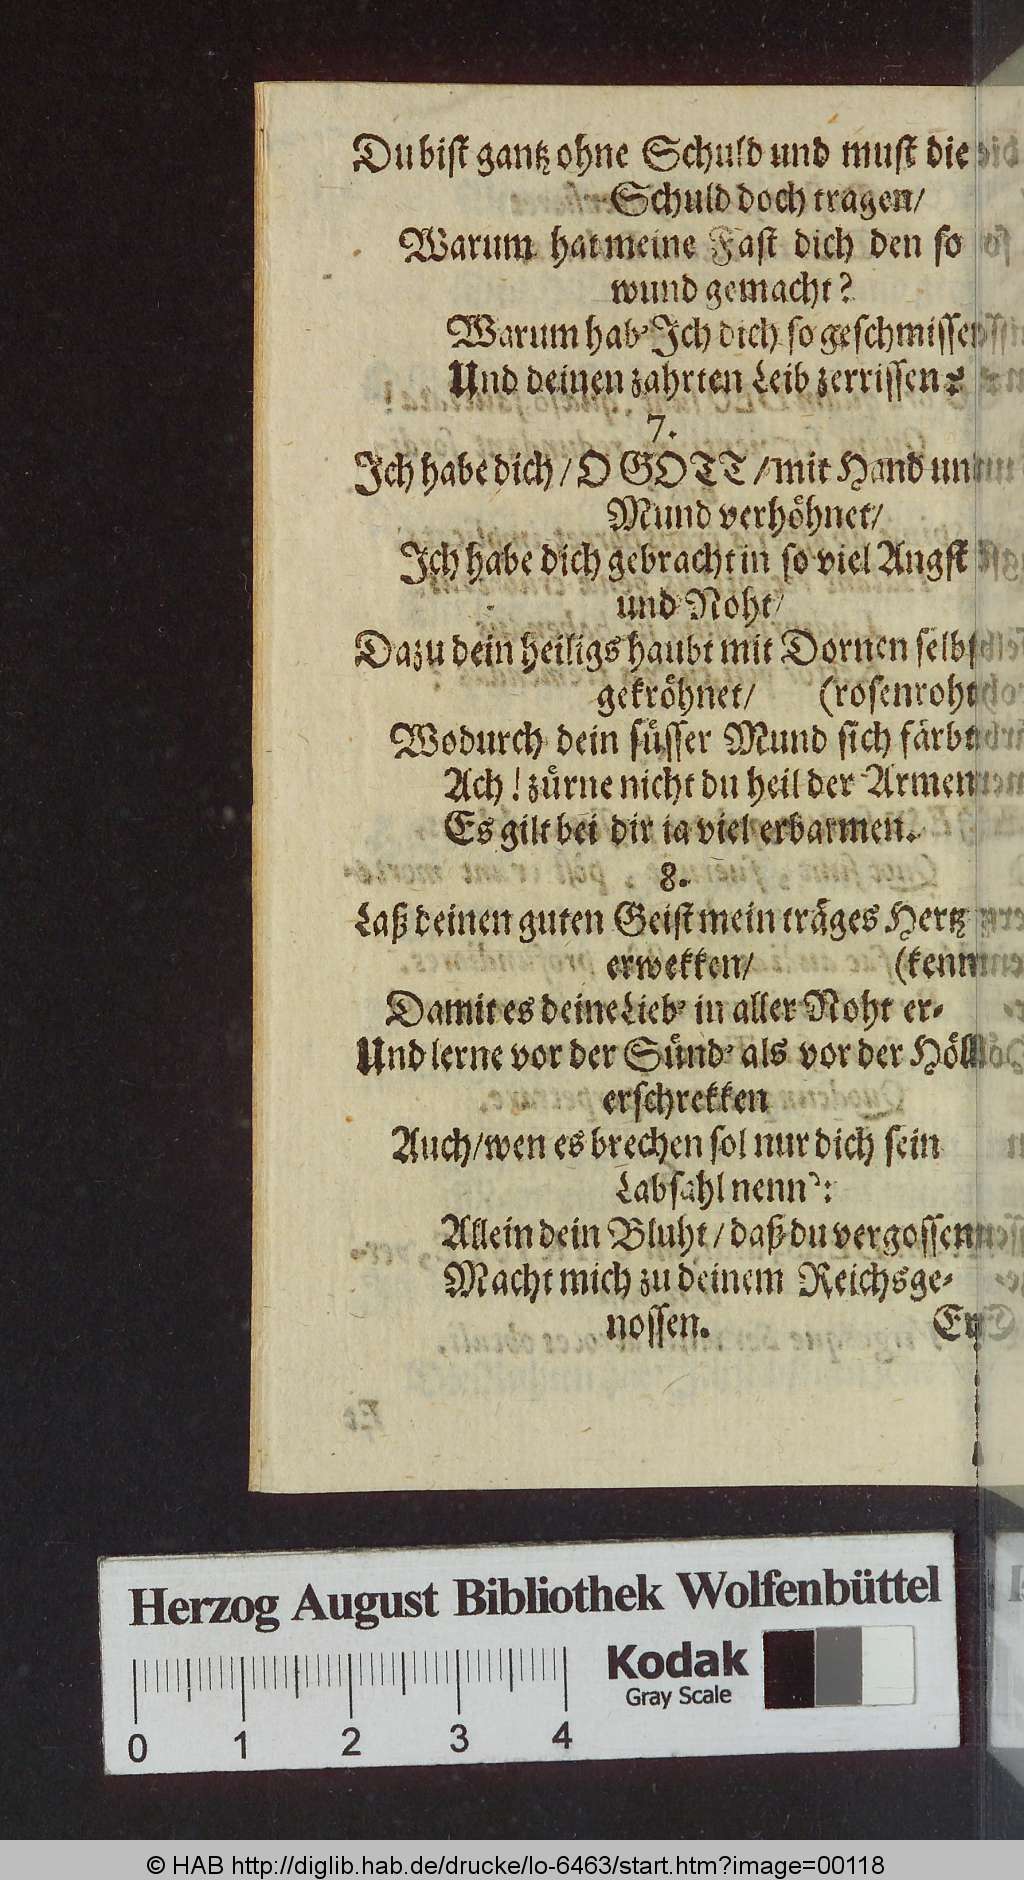 Du bist gantz ohne Schuld und must die
Schuld doch tragen/
Warum hat meine Fast dich den so
wund gemacht?
Warum hab' Ich dich so geschmissen
Und deinen zahrten Leib zerrissen?
7.
Ich habe dich/ O GOTT/ mit Hand un
Mund verhöhnet/
Ich habe dich gebracht in so viel Angst
und Noht/
Dazu dein heiligs haubt mit Dornen selbst
gekröhnet/ (rosenroht
Wodurch dein süsser Mund sich färbt
Ach! zürne nicht du heil der Armen
Es gilt bei dir ia viel erbarmen.
8.
Laß deinen guten Geist mein träges Hertz
erwekken/ (kenn
Damit es deine Lieb' in aller Noht er-
Und lerne vor der Sünd' als vor der Höll
erschrekken
Auch/ wen es brechen sol nur dich sein
Labsahl nenn':
Allein dein Bluht/ daß du vergossen
Macht mich zu deinem Reichsge-
nossen.
Herzog August Bibliothek Wolfenbüttel
Kodak
Gray Scale
0 1 2 3 4
© HAB http://diglib.hab.de/drucke/lo-6463/start.htm?image=00118